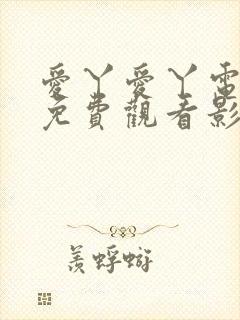 愛丫愛丫電
免費觀看影
羨蜉蝣